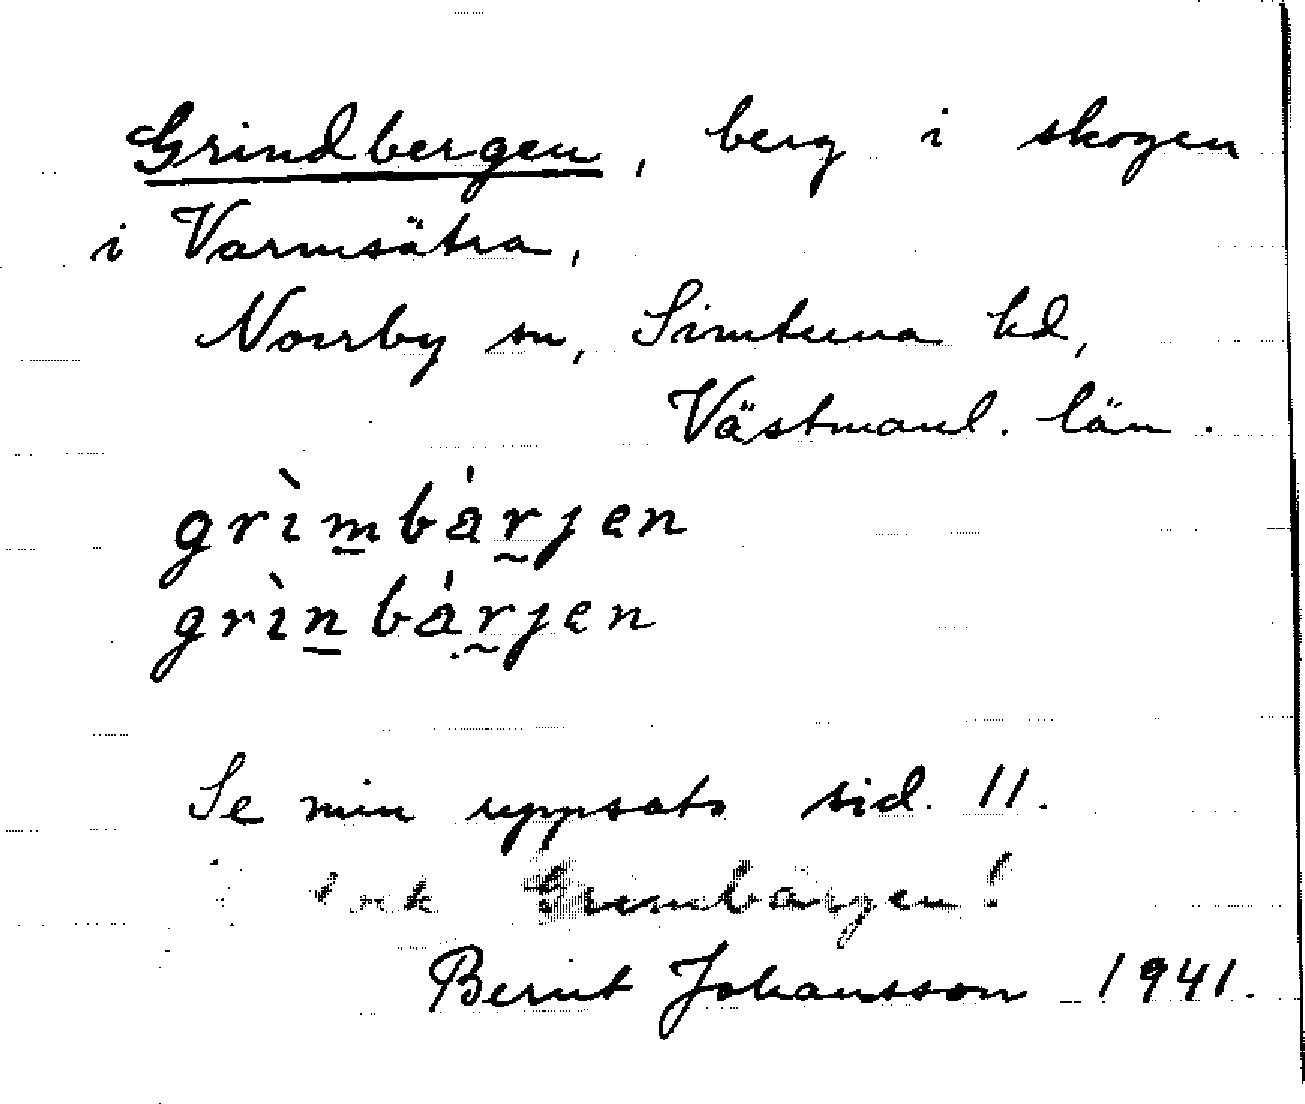 Grindbergen, berg i skogen
i Varmsätra,
Norrby sn, Simtuna hd,
Västmanl. län.
grìmbárjen
grìnbárjen
Se min uppsats sid. 11.
ock Grimbärjen!
Bernt Johansson 1941.